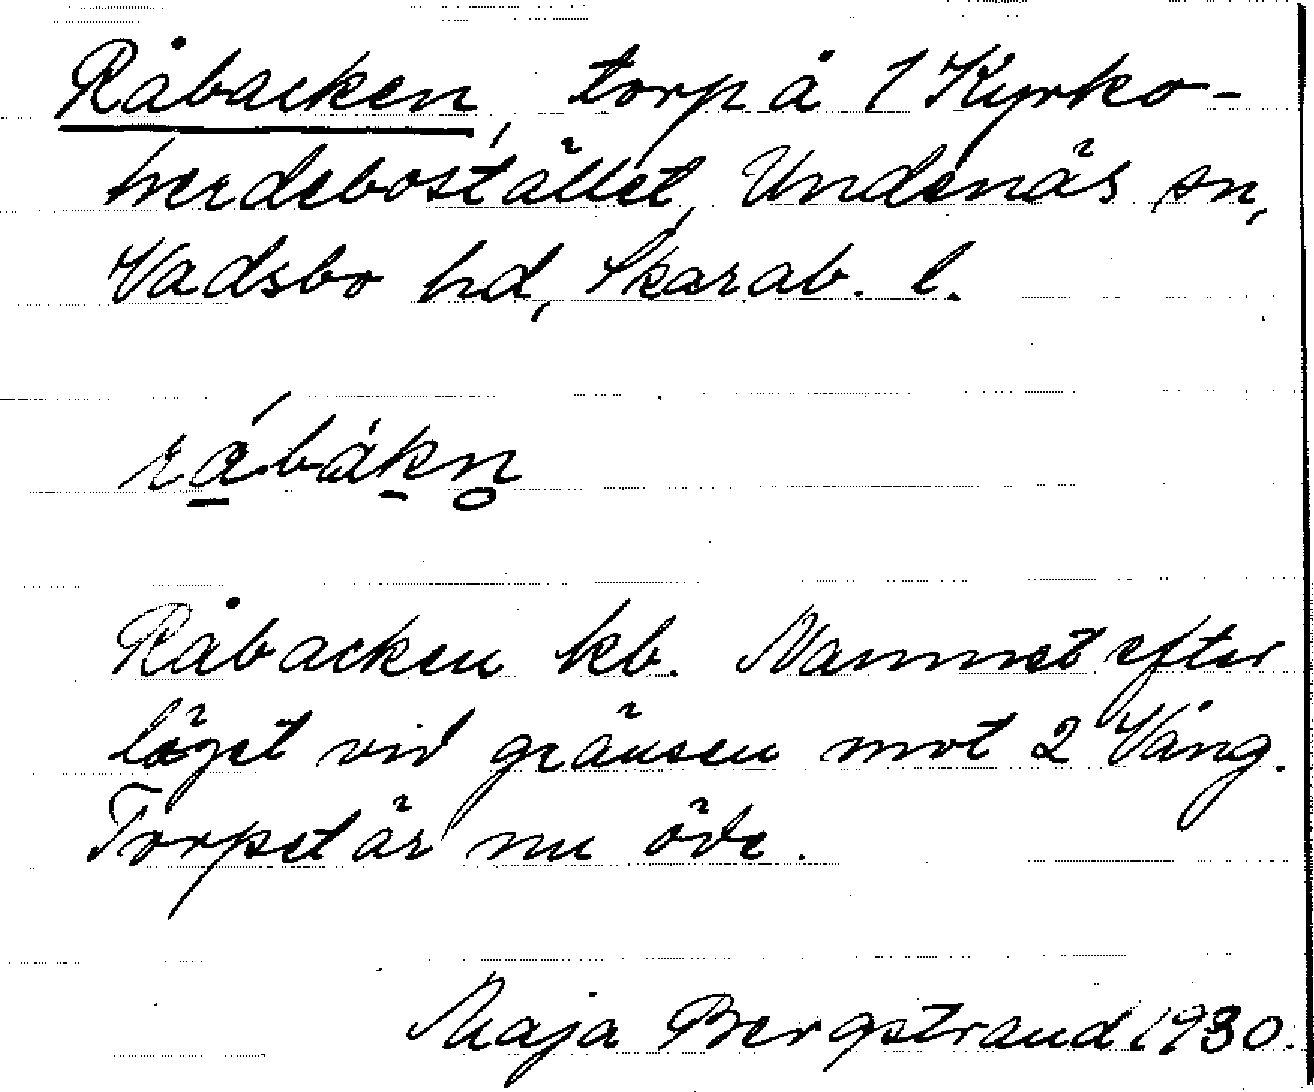 Råbacken, torp å 1 Kyrko-
herdebostället, Undenäs sn,
Vadsbo hd, Skarab. l.
råbàkn̥
Råbacken kb. Namnet efter
läget vid gränsen mot 2 Vång.
Torpet är nu öde.
Maja Bergstrand 1930.